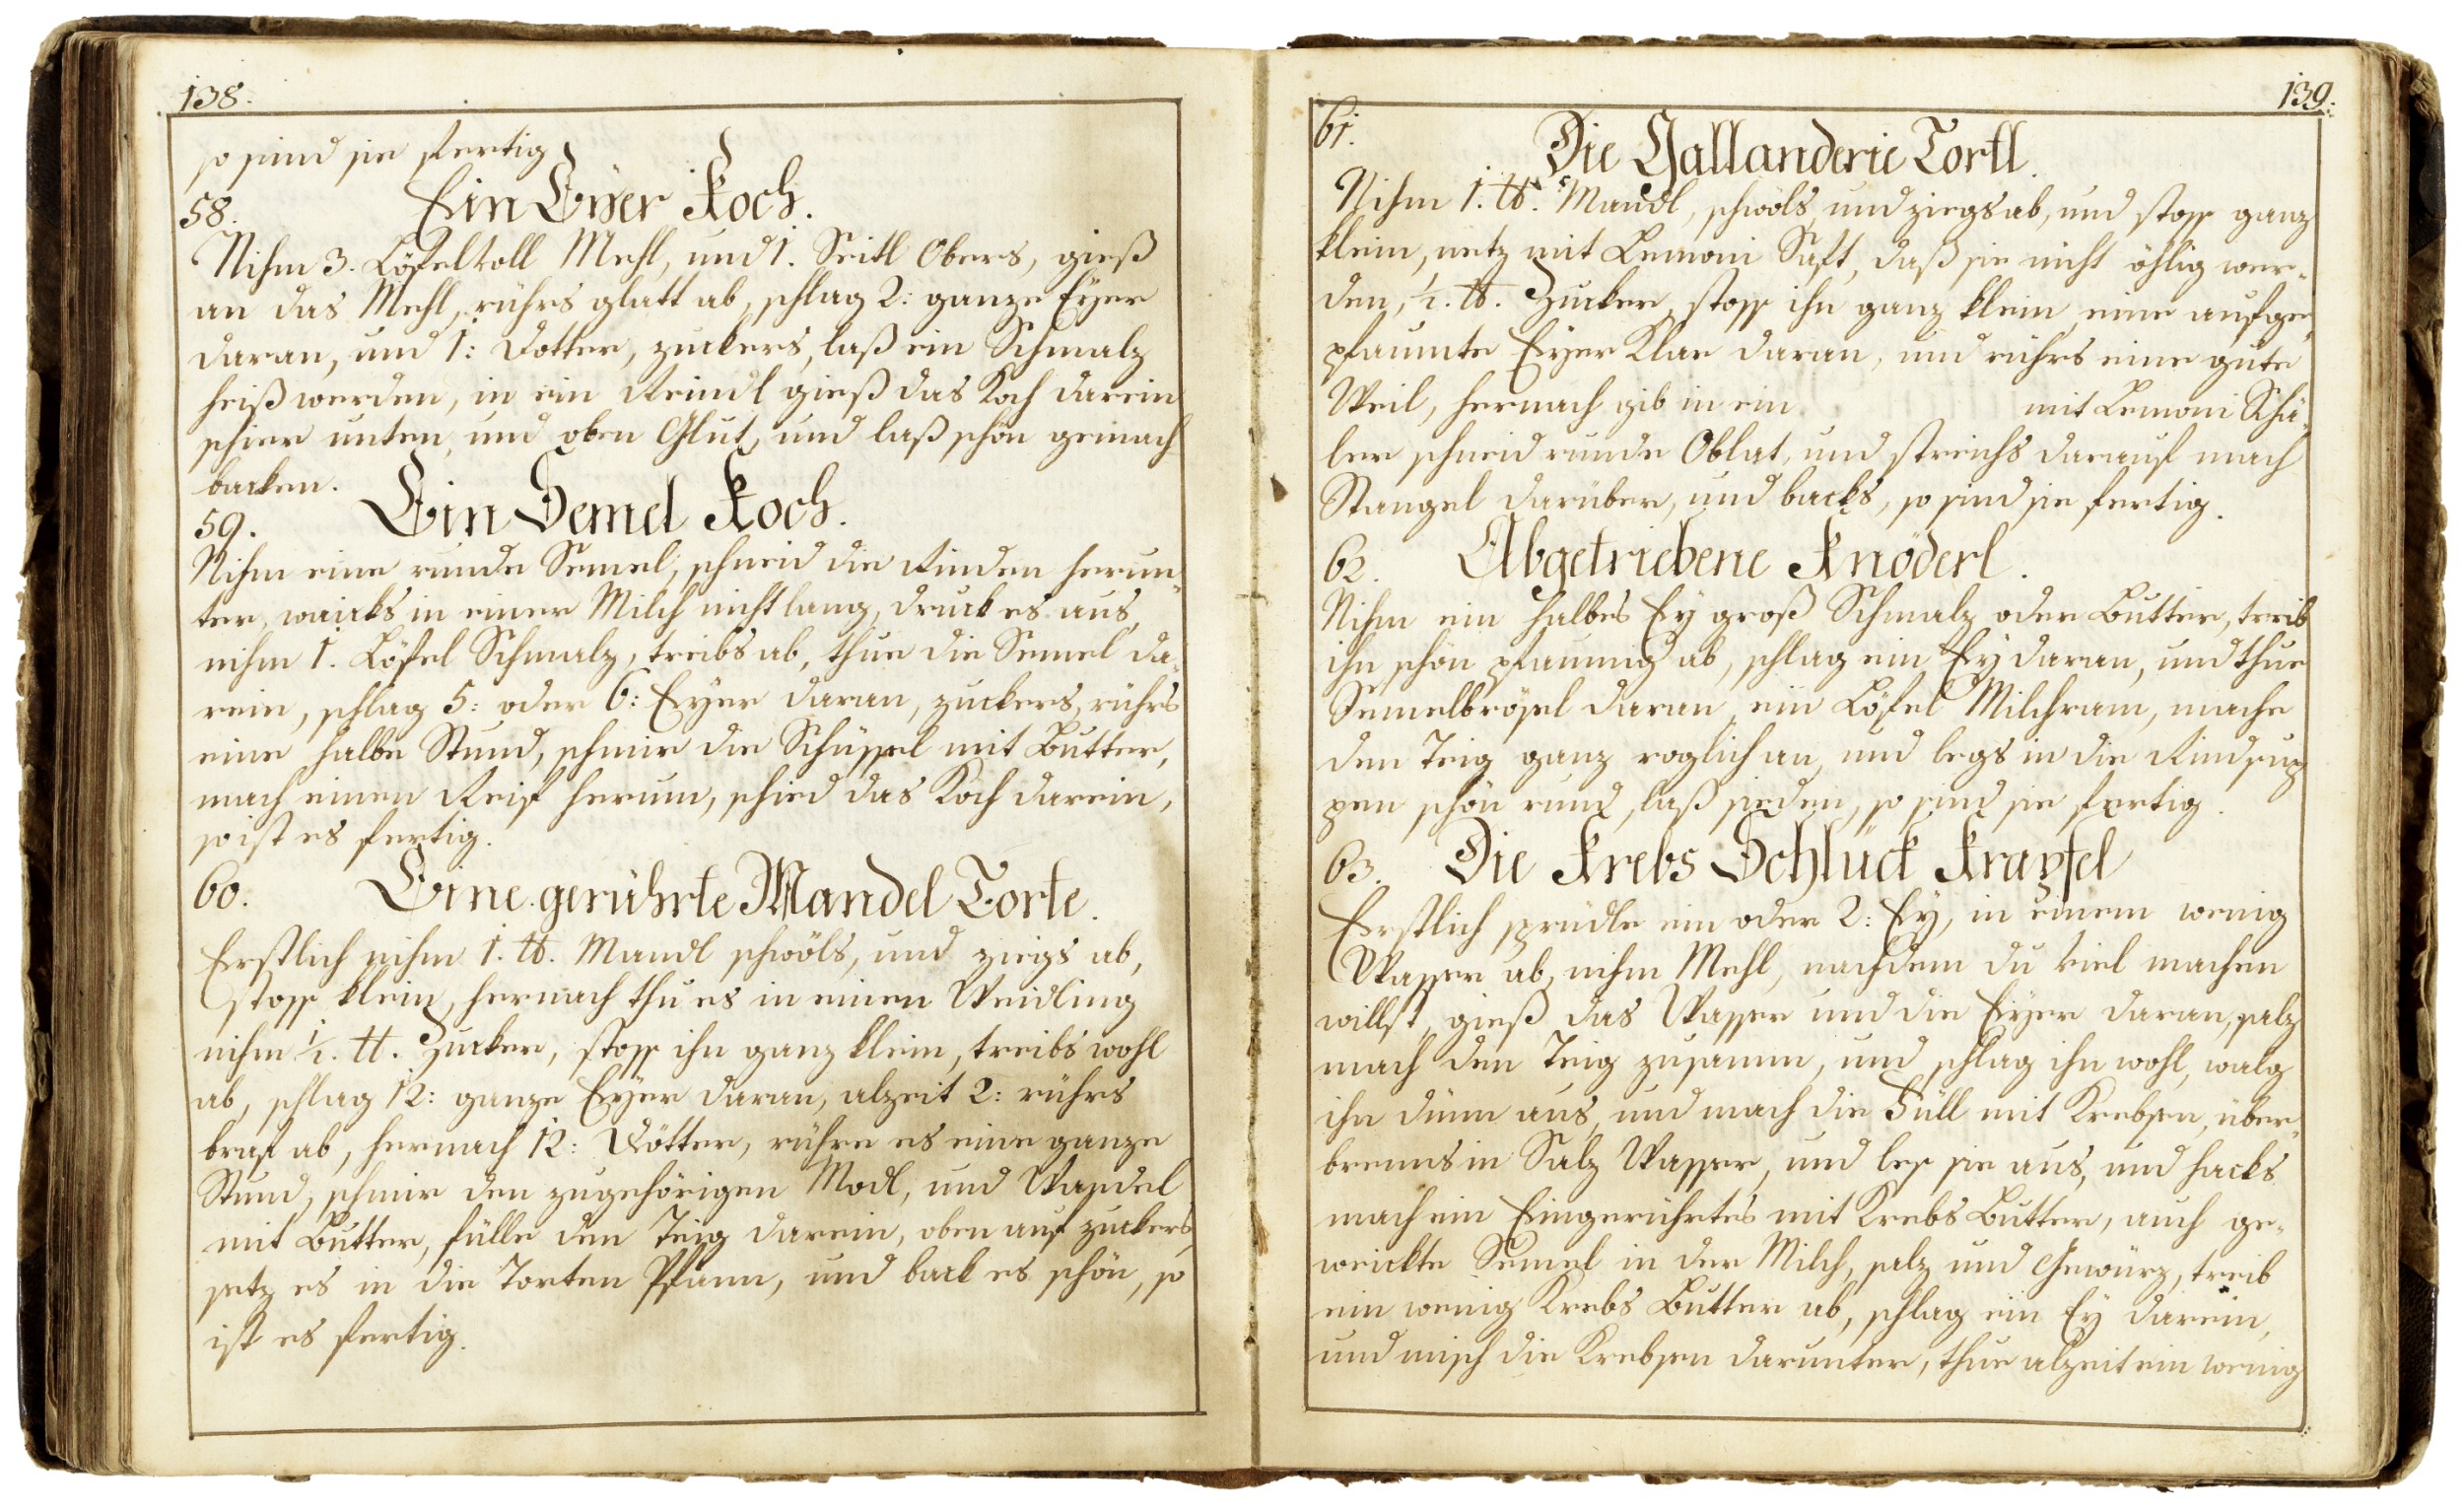 138.
so sind sie fertig
58. Ein Eyer Koch.
Nihm 3. Löfelvoll Mehl, und 1. Seitl Obers, gieß
an das Mehl, rührs glatt ab, schlag 2: ganze Eyer
daran, und 1: Dotter, zuckers, laß ein Schmalz
heiß werden, in ein Reindl gieß das Koch darein
schier unten, und oben Glut, und laß schön gemach
backen.
59. Ein Semel Koch.
Nihm eine runde Semel, schneid die Rinden herun„
ter, waicks in einer Milch nicht lang, druck es aus,
nihm 1. Löfel Schmalz, treibs ab, thue die Semel da„
rein, schlag 5: oder 6: Eyer daran, zuckers, rührs
eine halbe Stund, schmir die Schüssel mit Butter,
mach einen Reif herum, schied das Koch darein,
so ist es fertig.
60. Eine gerührte Mandel Torte.
Erstlich nihm 1. ℔. Mandl schwöls, und ziegs ab,
stoss klein, hernach thu es in einen Weidling
nihm ½. ℔. Zucker, stoss ihn ganz klein, treibs wohl
ab, schlag 12: ganze Eyer daran, alzeit 2: rührs
braf ab, hernach 12: Dötter, rühre es eine ganze
Stund, schmir den zugehörigen Modl, und Wandel
mit Butter, fülle den Teig darein, oben auf zuckers,
setz es in die Torten Pfann, und back es schön, so
ist es fertig.
139.
61. Die Gallanderie Tortl.
Nihm 1. ℔. Mandl, schwöls, und ziegs ab, und stoss ganz
klein, netz mit Lemoni Saft, daß sie nicht öhlig wer„
den, ½. ℔. Zucker, stoss ihn ganz klein, eine aufge„
pfaumte Eyer Klar daran, und rührs eine gute
Weil, hernach gib in ein mit Lemoni Schä„
ler schneid runde Oblat, und streichs darauf mach
Stangel darüber, und backs, so sind sie fertig.
62. Abgetriebene Knöderl.
Nihm ein halbes Ey groß Schmalz oder Butter, treib
ihn schön pfaumig ab, schlag ein Ey daran, und thue
Semelbrösel daran, ein Löfel Milchram, mache
den Teig ganz roglich an, und legs in die Rindsup
pen schön rund, laß sieden, so sind sie fertig.
63. Die Krebs Schluck Krapfel
Erstlich sprudle ein oder 2: Ey, in einem wenig
Wasser ab, nihm Mehl, nachdem du viel machen
willst, gieß das Wasser und die Eyer daran, salz
mach den Teig zusamm, und schlag ihn wohl, walg
ihn dünn aus, und mach die Füll mit Krebsen, über„
brenns in Salz Wasser, und les sie aus, und hacks
mach ein Eingerührtes mit Krebs Butter, auch ge„
weickte Semel in der Milch, salz und Gewürz, treib
ein wenig Krebs Butter ab, schlag ein Ey darein,
und misch die Krebsen darunter, thue alzeit ein wenig